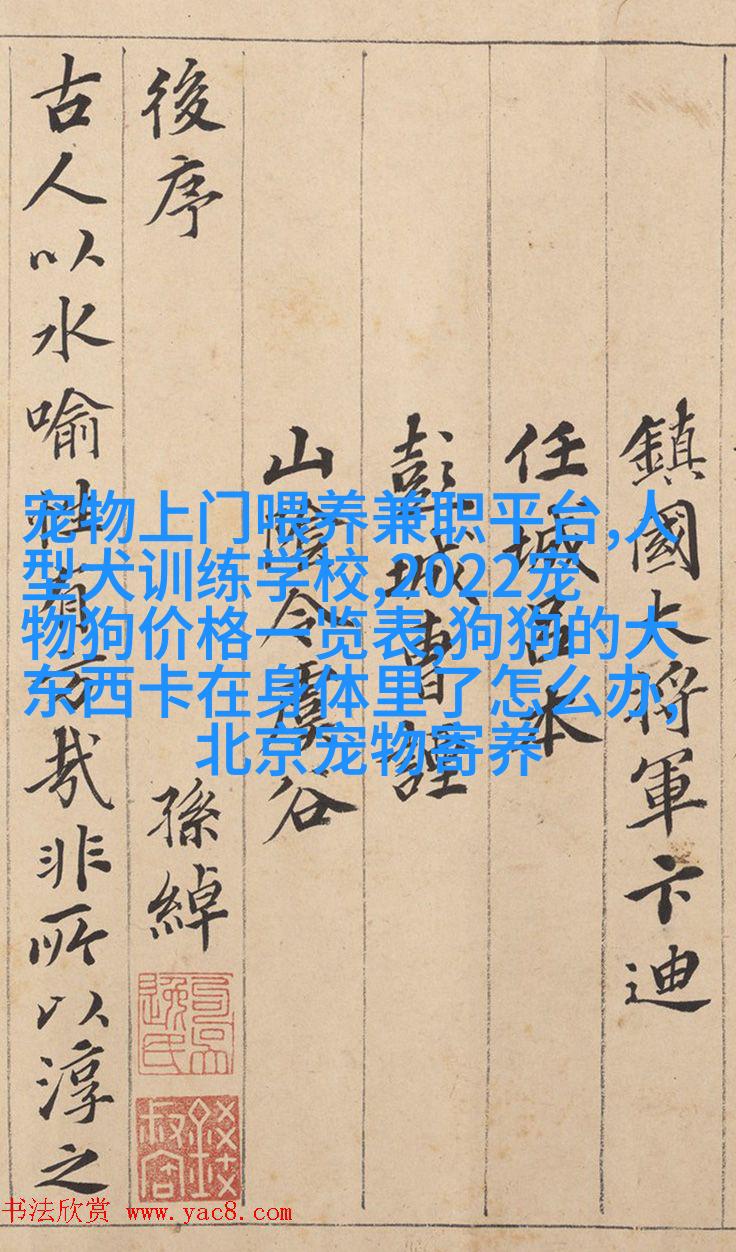 鎮國大将軍卞迪
任城呂本
彭城曹諲
山陰令虞谷
後序
孫綽
古人以水喻性有旨哉非所以淳之
宠物上门喂养兼职平台,人
型犬训练学校,2022宠
物狗价格一览表,狗狗的大
东西卡在身体里了怎么办,
北京宠物寄养
书法欣赏 www.yac8.com